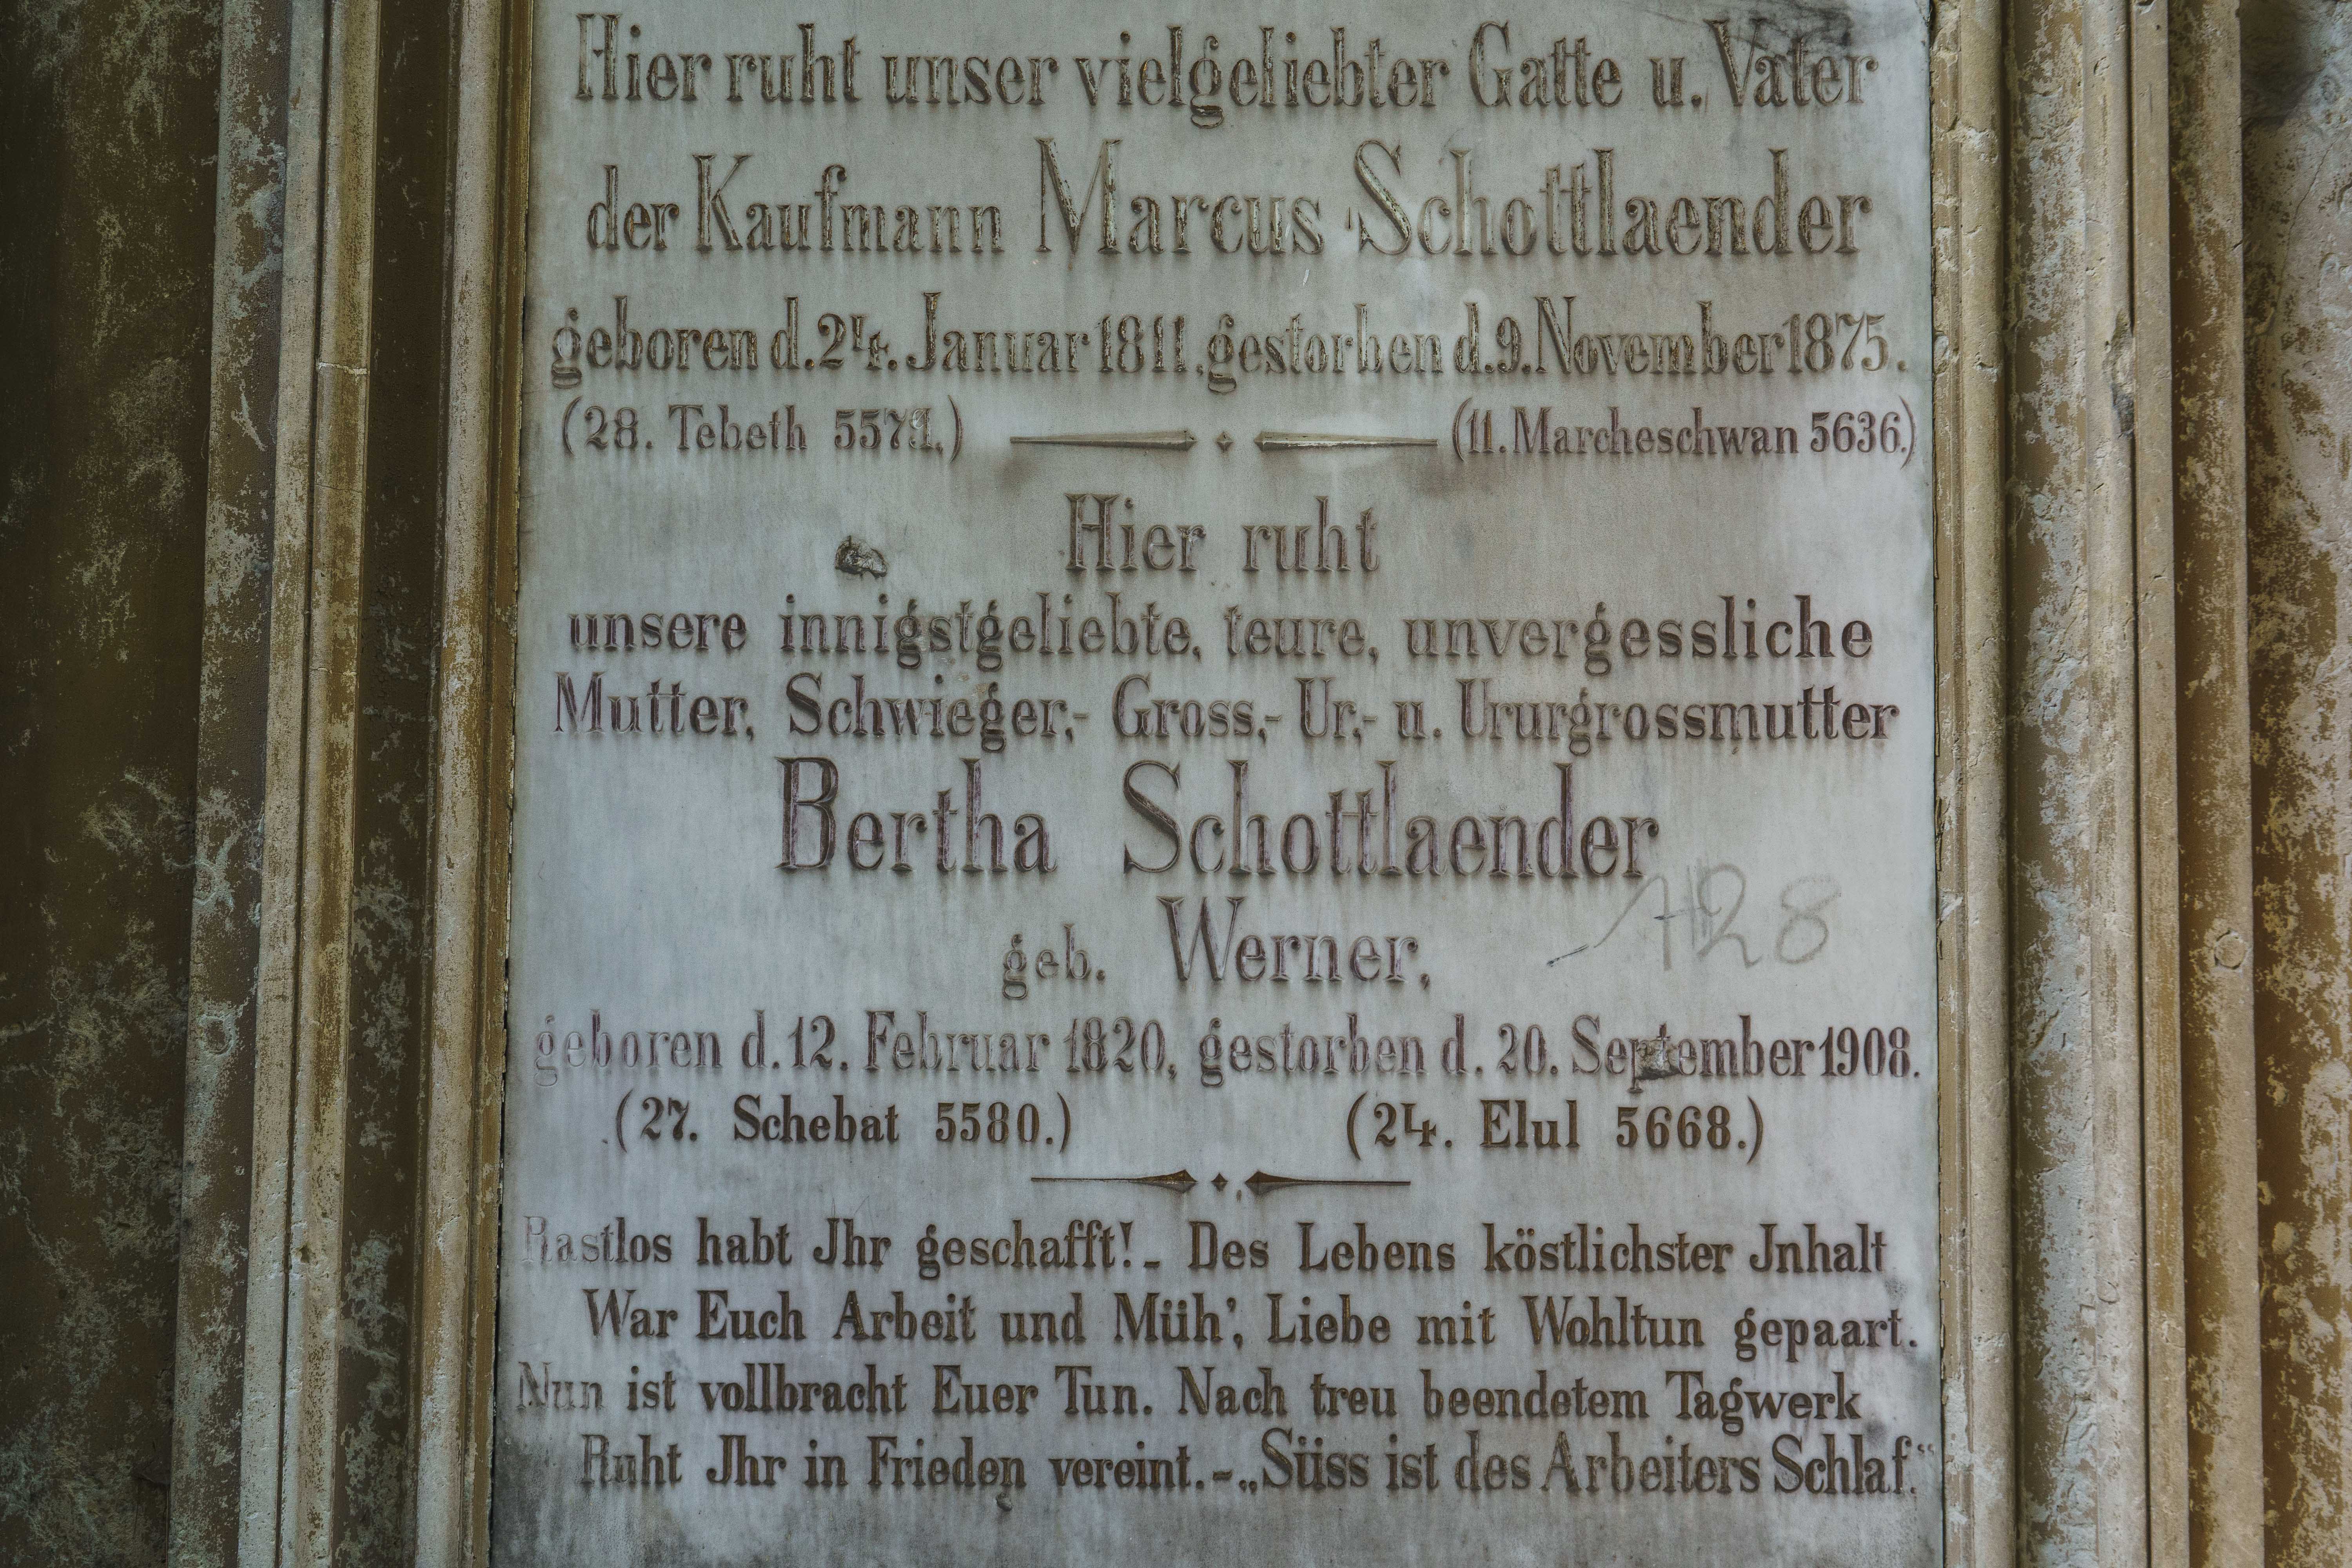 Hier ruht unser vielgeliebter Gatte u. Vater
der Kaufmann Marcus Schottlaender
geboren d. 24. Januar 1811, gestorben d. 9. November 1875.
(28. Tebeth 5571.) (11. Marcheschwan 5636.)
Hier ruht
unsere innigstgeliebte, teure, unvergessliche
Mutter, Schwieger,- Gross,- Ur,- u. Ururgrossmutter
Bertha Schottlaender
geb. Werner,
128
geboren d. 12. Februar 1820, gestorben d. 20. September 1908.
(27. Schebat 5580.) (24. Elul 5668.)
Rastlos habt Jhr geschafft! - Des Lebens köstlichster Jnhalt
War Euch Arbeit und Müh', Liebe mit Wohltun gepaart.
Nun ist vollbracht Euer Tun. Nach treu beendetem Tagwerk
Ruht Jhr in Frieden vereint. - „Süss ist des Arbeiters Schlaf.“